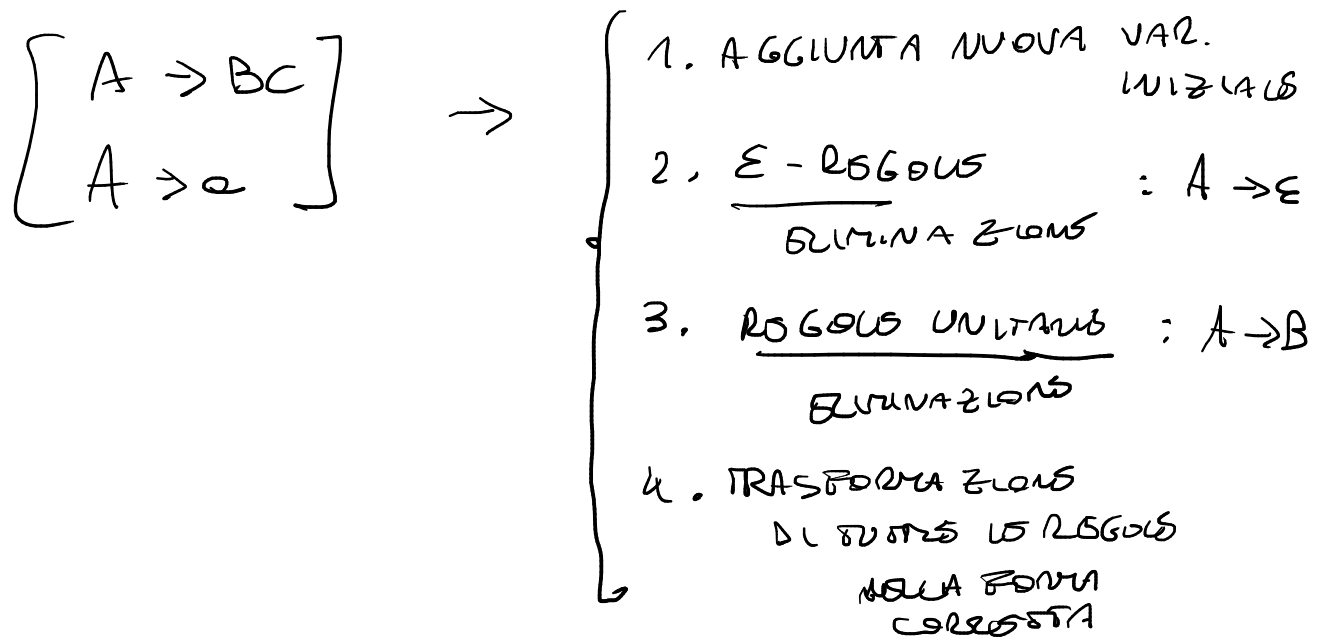 A → BC
A → a
→
1. AGGIUNTA NUOVA VAR.
INIZIALE
2. ε - REGOLE : A → ε
ELIMINAZIONE
3. REGOLE UNITARIE : A → B
ELIMINAZIONE
4. TRASFORMAZIONE
DI TUTTE LE REGOLE
NELLA FORMA
CORRETTA